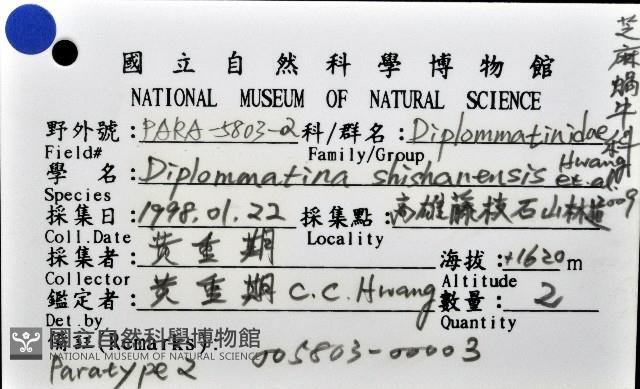 國立自然科學博物館
NATIONAL MUSEUM OF NATURAL SCIENCE
芝麻蝸牛科
野外號:PARA-5803-2 科/群名:Diplommatinidae
Field# Family/Group
學名:Diplommatina shishanensis Hwang et al. 2009
Species
採集日:1998.01.22 採集點:高雄藤枝石山林道
Coll.Date Locality
採集者:黃重期 海拔:+1620m
Collector Altitude
鑑定者:黃重期 C.C.Hwang 數量:2
Det.by Quantity
備註(Remarks): 005803-00003
Paratype 2
國立自然科學博物館
NATIONAL MUSEUM OF NATURAL SCIENCE